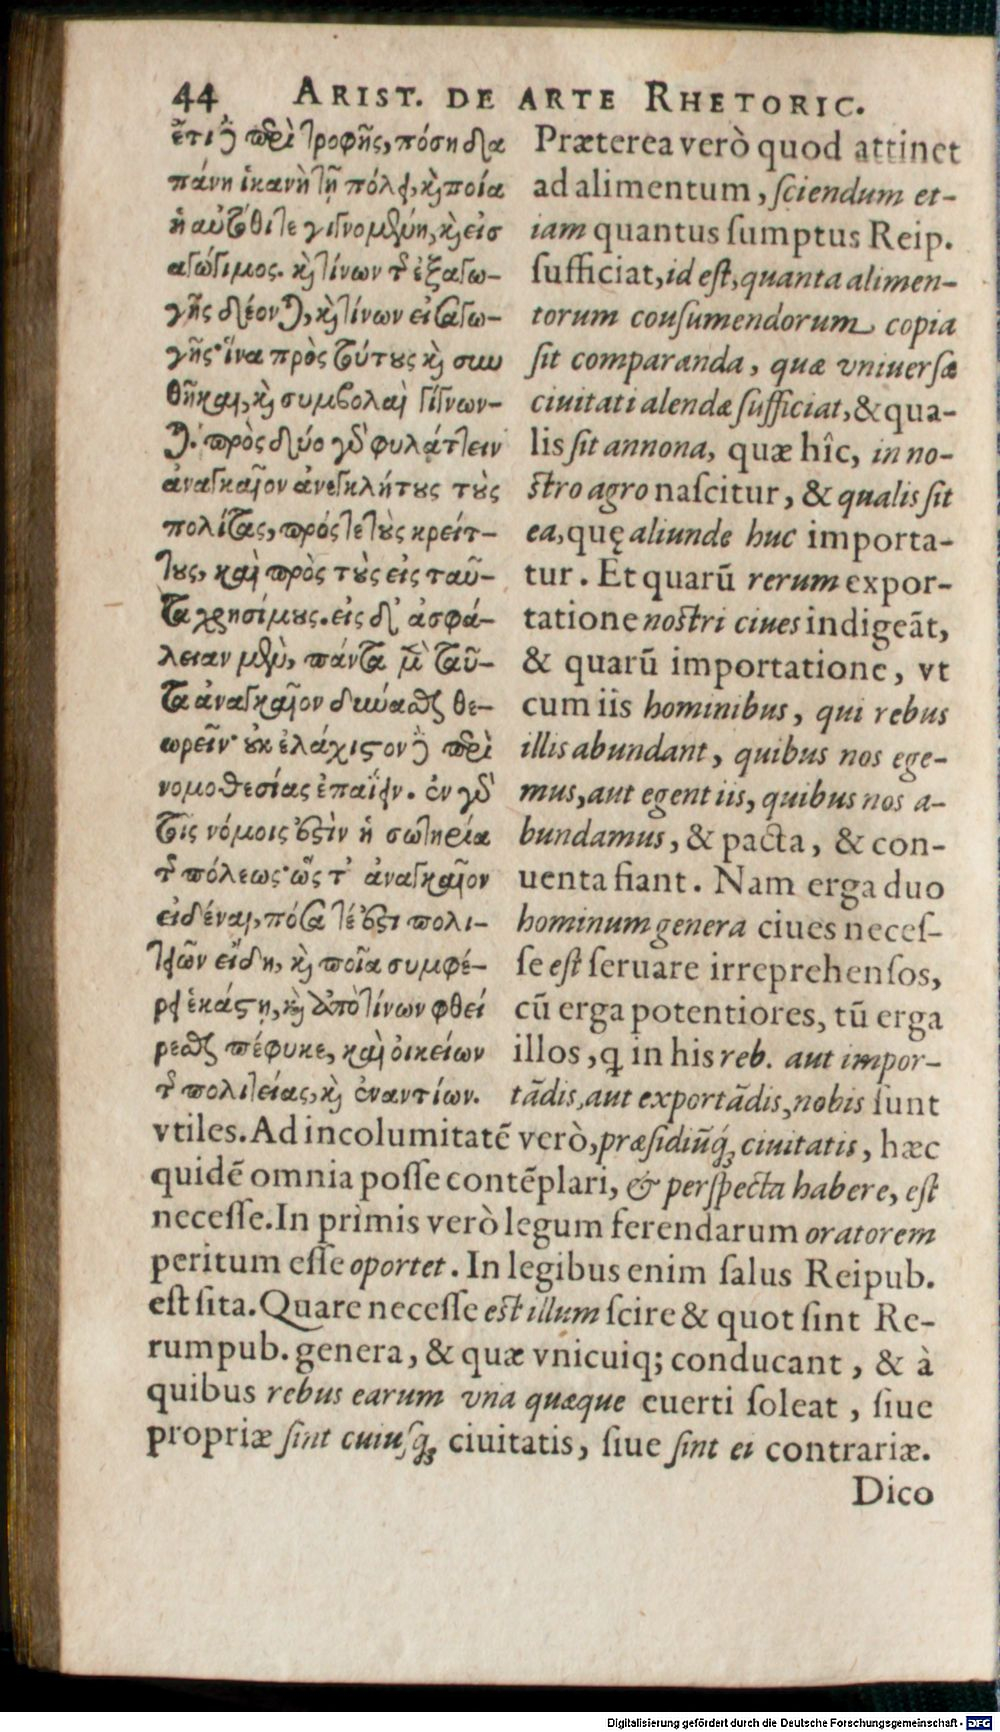 44 ARIST. DE ARTE RHETORIC.
ἔτι δὲ περὶ τροφῆς, πόση δα
πάνη ἱκανὴ τῇ πόλει, καὶ ποία
ἡ αὐτόθι τε γιγνομένη, καὶ εἰσ
αγώγιμος. καὶ τίνων τῆς ἐξαγω-
γῆς δέονται, καὶ τίνων εἰσαγω-
γῆς· ἵνα πρὸς τούτους καὶ συν
θῆκαι, καὶ συμβολαὶ γίγνων-
ται. πρὸς δύο γὰρ φυλάττειν
ἀναγκαῖον ἀνεγκλήτους τοὺς
πολίτας, πρός τε τοὺς κρείτ-
τους, καὶ πρὸς τοὺς εἰς ταῦ-
τα χρησίμους. εἰς δ' ἀσφά-
λειαν μὲν, πάντα μὲν ταῦ-
τα ἀναγκαῖον δύνασθαι θε-
ωρεῖν· οὐκ ἐλάχιστον δὲ περὶ
νομοθεσίας ἐπαΐειν. ἐν γὰρ
τοῖς νόμοις ἐστὶν ἡ σωτηρία
τῆς πόλεως· ὥς τ' ἀναγκαῖον
εἰδέναι, πόσα τέ ἐστι πολι-
τειῶν εἴδη, καὶ ποῖα συμφέ-
ρει ἑκάστῃ, καὶ ἀπὸ τίνων φθεί
ρεσθαι πέφυκε, καὶ οἰκείων
τῆς πολιτείας, καὶ ἐναντίων.
Præterea verò quod attinet
ad alimentum, ſciendum et-
iam quantus ſumptus Reip.
ſufficiat, id eſt, quanta alimen-
torum conſumendorum copia
ſit comparanda, quæ vniuerſæ
ciuitati alendæ ſufficiat, & qua-
lis ſit annona, quæ hîc, in no-
ſtro agro naſcitur, & qualis ſit
ea, quę aliunde huc importa-
tur. Et quarū rerum expor-
tatione noſtri ciues indigeāt,
& quarū importatione, vt
cum iis hominibus, qui rebus
illis abundant, quibus nos ege-
mus, aut egent iis, quibus nos a-
bundamus, & pacta, & con-
uenta fiant. Nam erga duo
hominum genera ciues neceſ-
ſe eſt ſeruare irreprehenſos,
cū erga potentiores, tū erga
illos, ꝗ in his reb. aut impor-
tādis, aut exportādis, nobis ſunt
vtiles. Ad incolumitatē verò, præſidiūq́ꝫ ciuitatis, hæc
quidē omnia poſſe contēplari, & perſpecta habere, eſt
neceſſe. In primis verò legum ferendarum oratorem
peritum eſſe oportet. In legibus enim ſalus Reipub.
eſt ſita. Quare neceſſe eſt illum ſcire & quot ſint Re-
rumpub. genera, & quæ vnicuiq; conducant, & à
quibus rebus earum vna quæque euerti ſoleat, ſiue
propriæ ſint cuiuſq́ꝫ ciuitatis, ſiue ſint ei contrariæ.
Dico
Digitalisierung gefördert durch die Deutsche Forschungsgemeinschaft - DFG